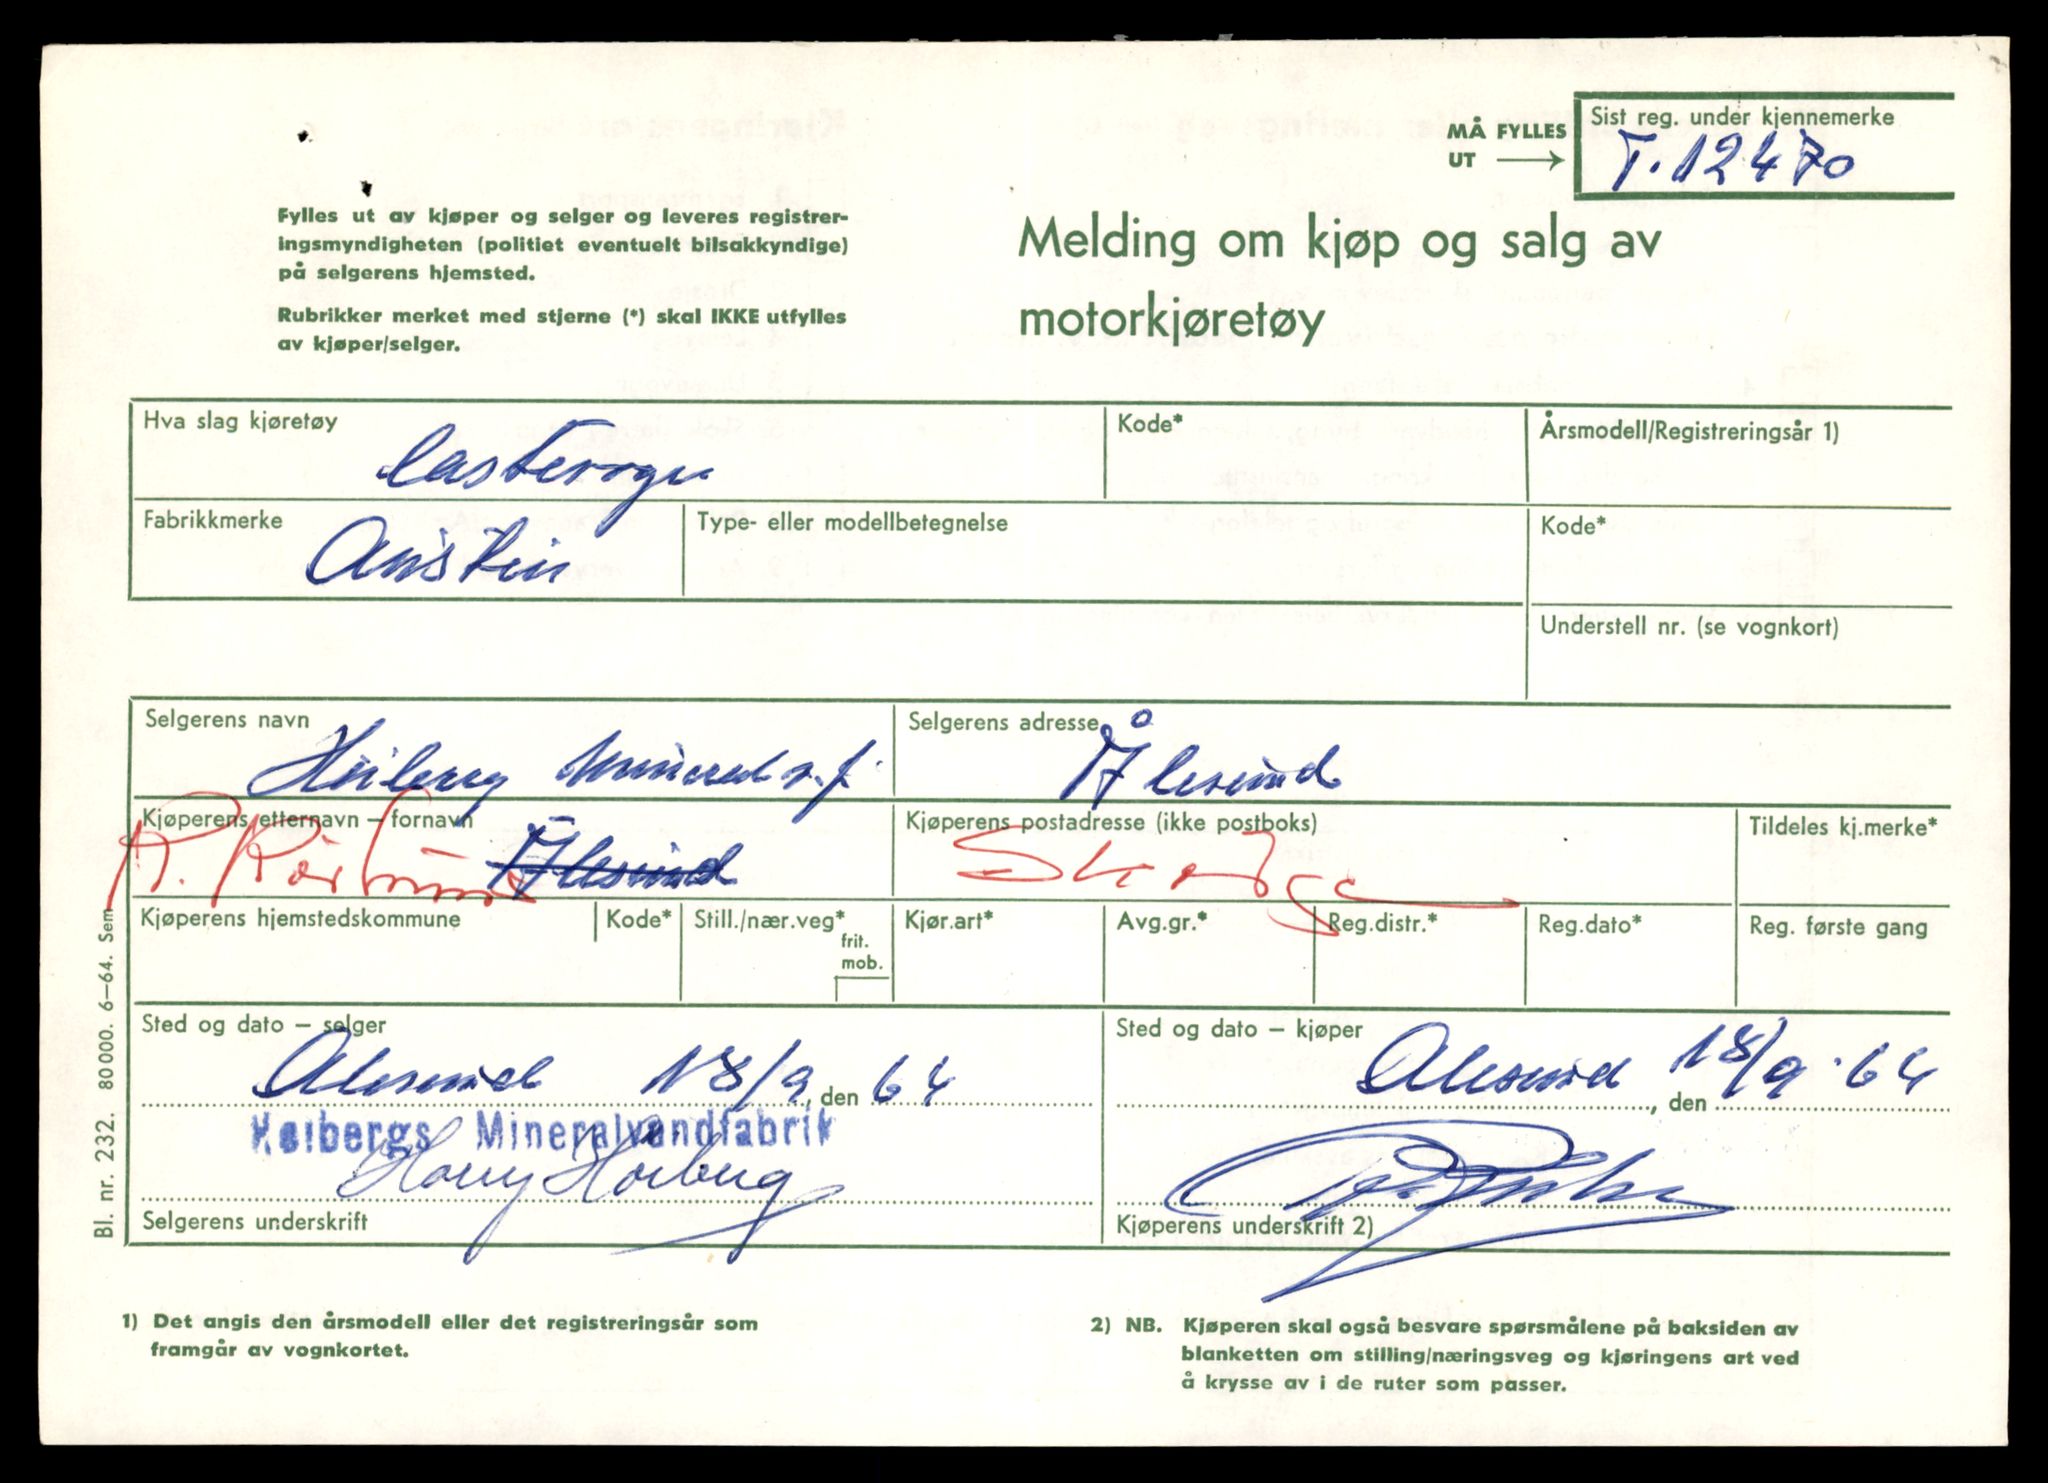 MÅ FYLLES
UT
Sist reg. under kjennemerke
T. 12470
Fylles ut av kjøper og selger og leveres registrer-
ingsmyndigheten (politiet eventuelt bilsakkyndige)
på selgerens hjemsted.
Rubrikker merket med stjerne (*) skal IKKE utfylles
av kjøper/selger.
Melding om kjøp og salg av
motorkjøretøy
Hva slag kjøretøy
Kode*
Årsmodell/Registreringsår 1)
Lastevogn
Fabrikkmerke
Type- eller modellbetegnelse
Kode*
Austin
Understell nr. (se vognkort)
Selgerens navn
Selgerens adresse
Ålesund
Kjøperens etternavn – fornavn
Kjøperens postadresse (ikke postboks)
Tildeles kj.merke*
Ålesund
Kjøperens hjemstedskommune
Kode*
Still./nær.veg*
frit.
mob.
Kjør.art*
Avg.gr.*
Reg.distr.*
Reg.dato*
Reg. første gang
Sted og dato – selger
Sted og dato – kjøper
Alesund 18/9, den 64
Alesund, den 18/9. 64
Mineralvandfabrik
Harry
Selgerens underskrift
Kjøperens underskrift 2)
1) Det angis den årsmodell eller det registreringsår som
framgår av vognkortet.
2) NB. Kjøperen skal også besvare spørsmålene på baksiden av
blanketten om stilling/næringsveg og kjøringens art ved
å krysse av i de ruter som passer.
Bl. nr. 232. 80 000. 6–64. Sem